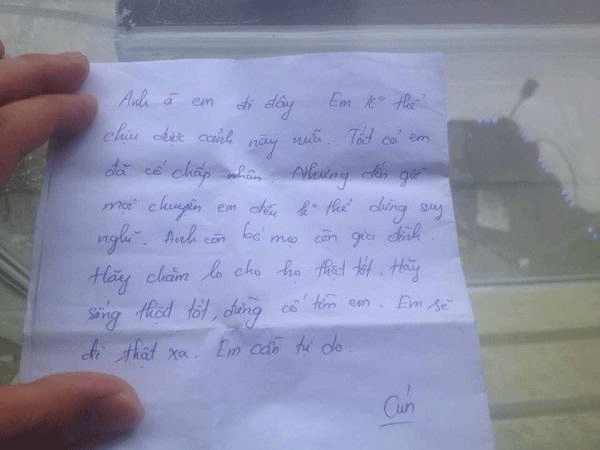 Anh à em đi đây. Em ko thể
chịu được cảnh này nữa. Tất cả em
đã cố chấp nhận. Nhưng đến giờ
mọi chuyện em đều ko thể dừng suy
nghĩ. Anh còn bố mẹ còn gia đình
Hãy chăm lo cho họ thật tốt. Hãy
sống thật tốt, đừng cố tìm em. Em sẽ
đi thật xa. Em cần tự do.
Cún